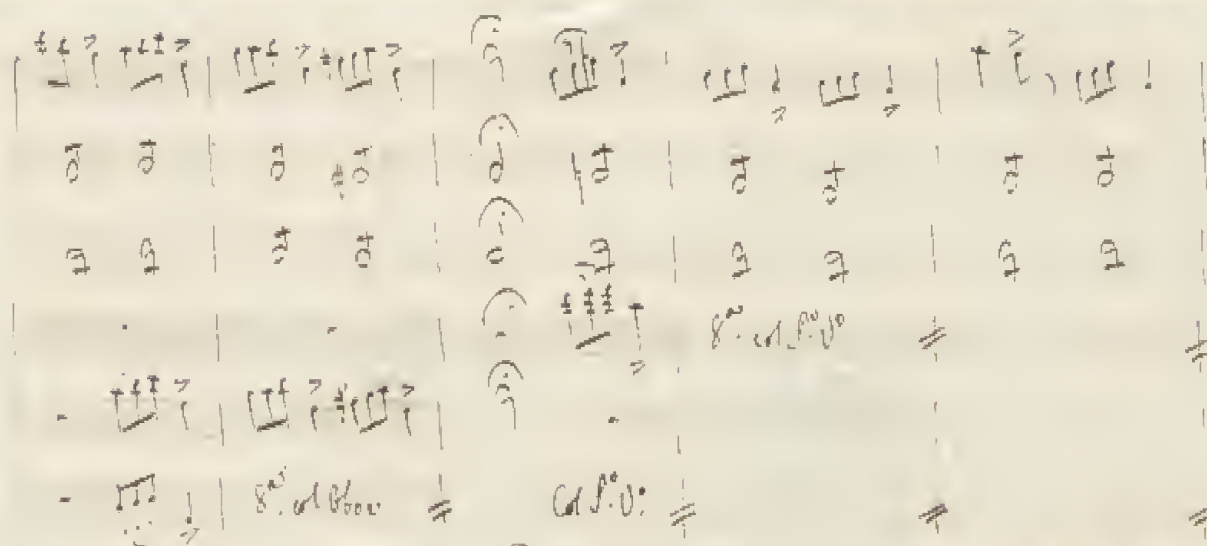 8ª. col P.º V.º
8ª. col Oboe Col P.º V.º